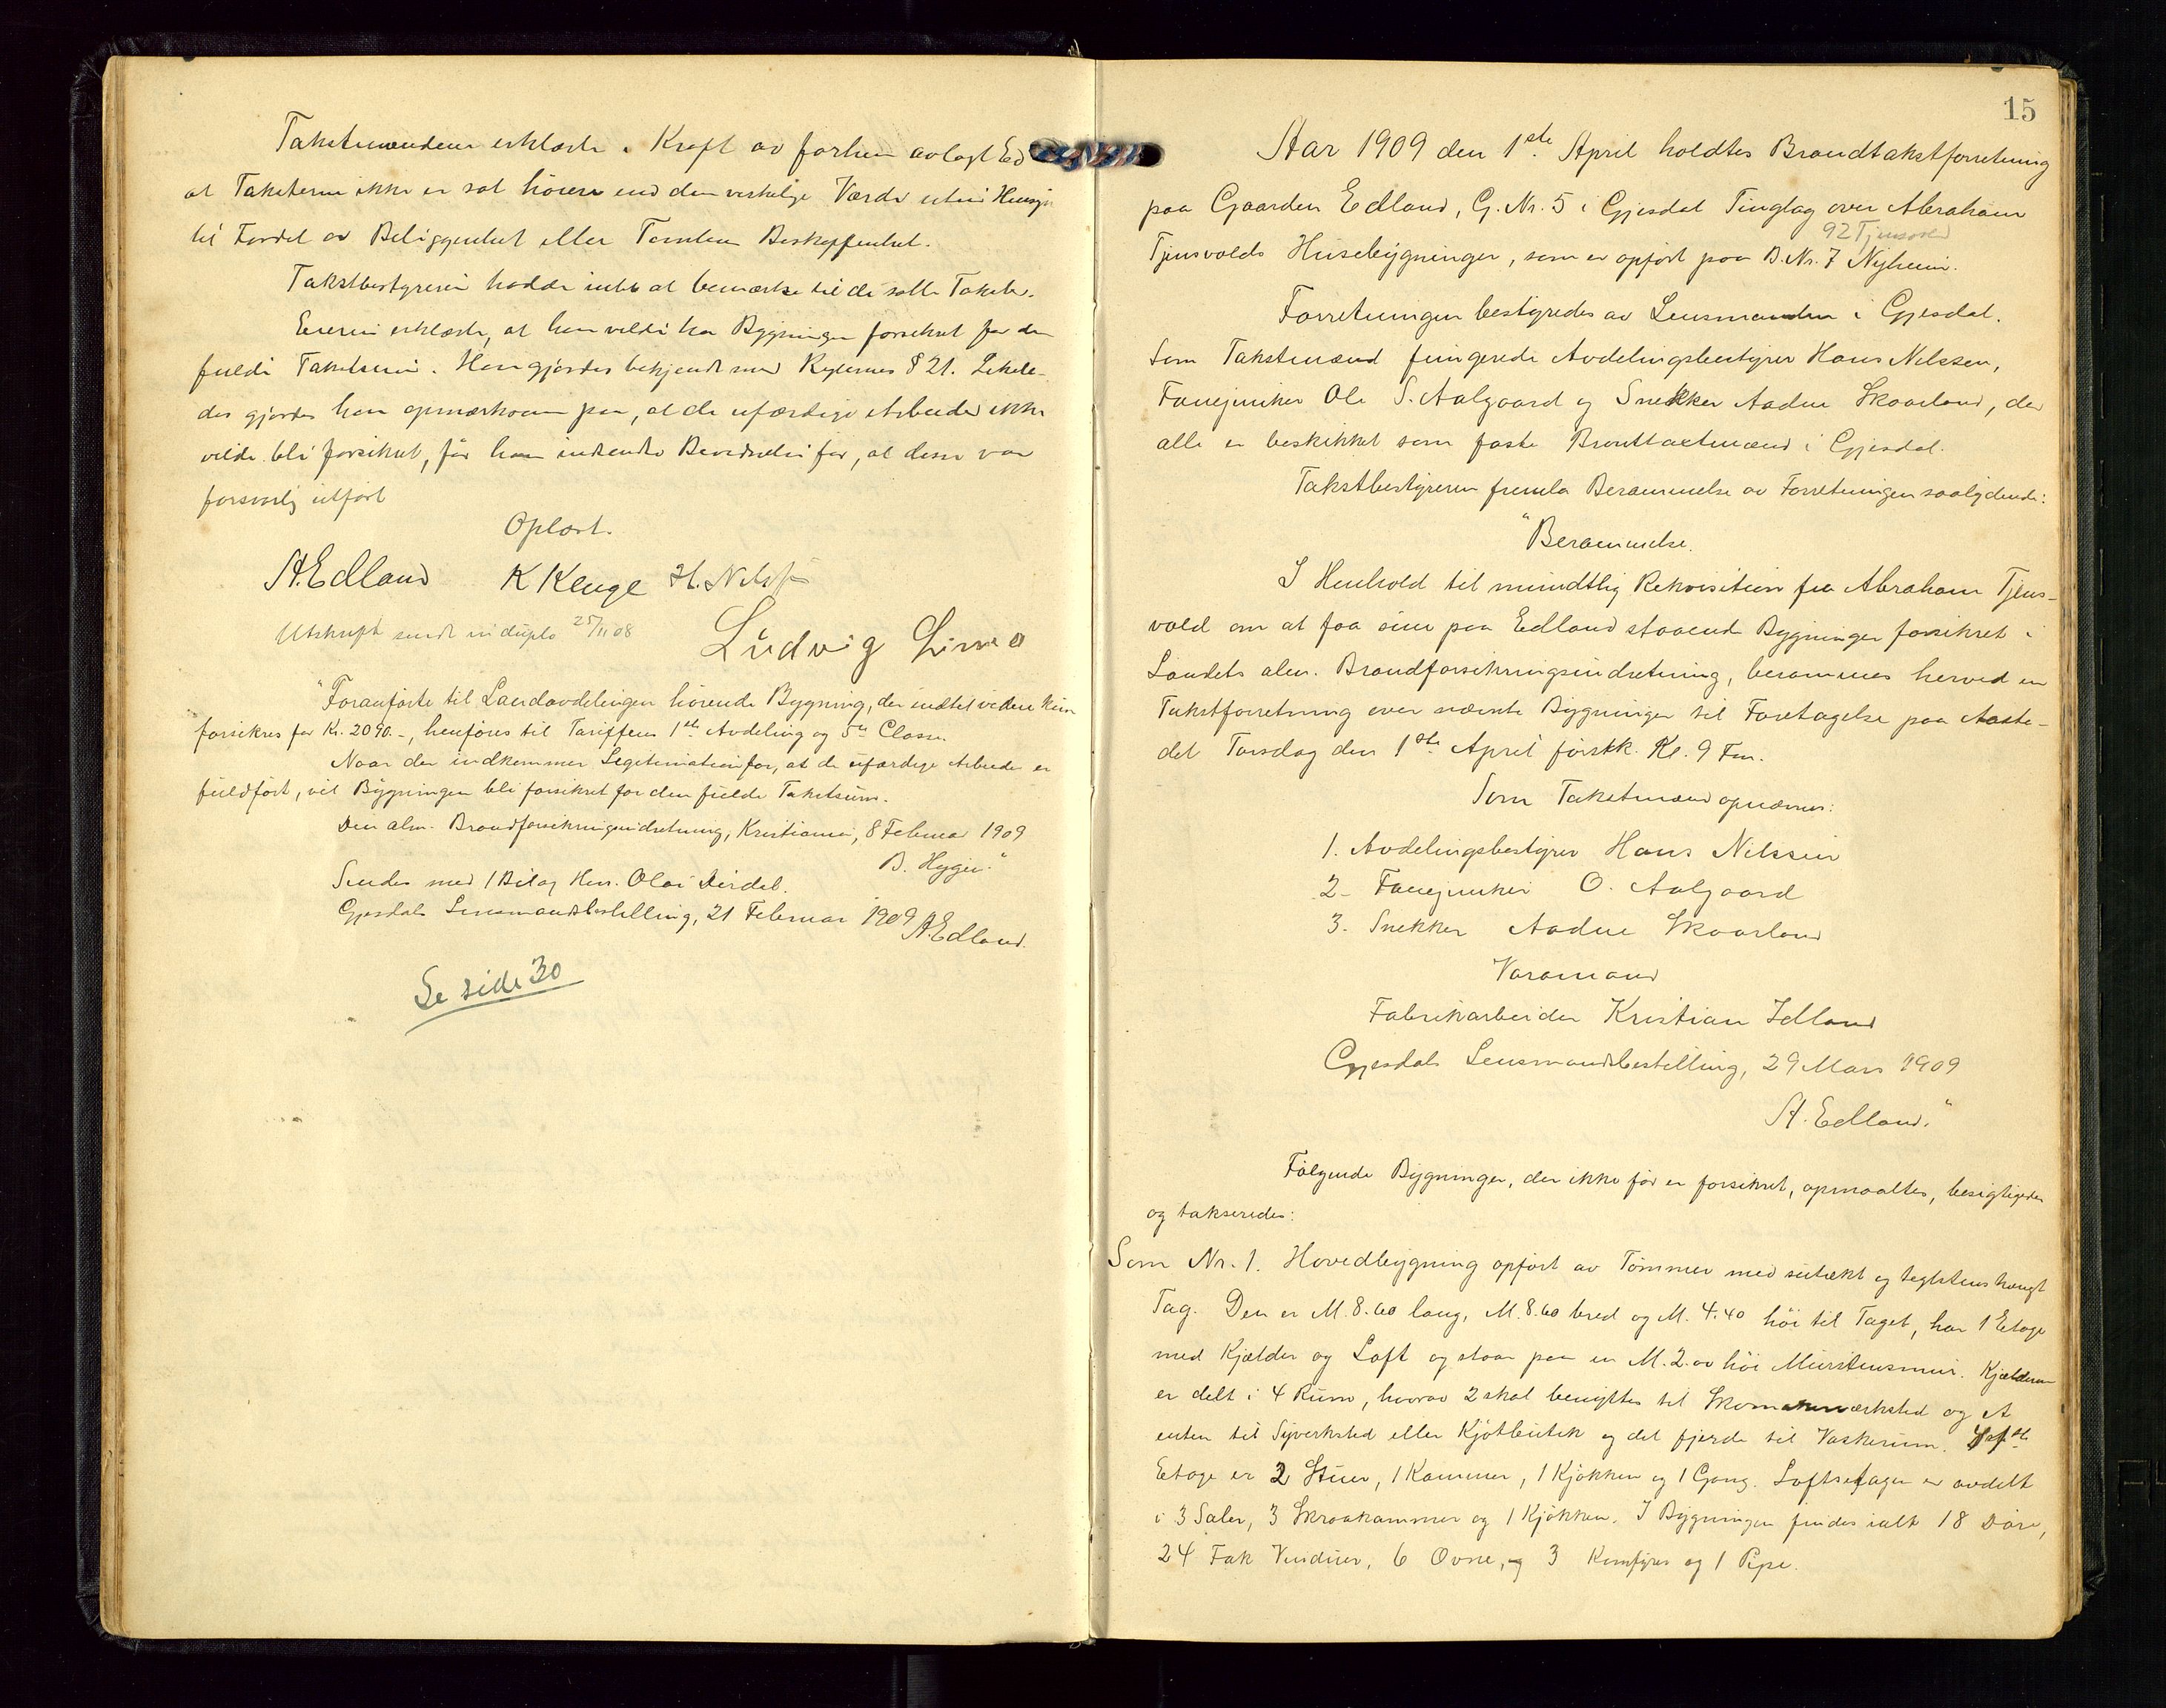 Takstmændene erklærte i Kraft av forhen avlagt Ed
at Taksterne ikke er sat höiere end den virkelige Værdi uten Hensyn
til Fordel av Beliggenhet eller Tomtens Beskaffenhet.
Takstbestyreren hadde intet at bemærke til de satte Takster.
Eieren erklærte, at han vilde ha Bygningen forsikret for den
fulde Takstsum. Han gjordes bekjendt med Reglernes § 21. Likele-
des gjordes han opmærksom paa, at de ufærdige Arbeider ikke
vilde bli forsikret, för han indsendte Bevidnelse for, at disse var
forsvarlig utfört
Oplæst.
A. Edland K Kluge H. Nilssen
Utskrift sendt in duplo 25/11 08
Ludvig Lima
"Foranförte til Landavdelingen hörende Bygning, der indtil videre kun
forsikres for Kr. 2090.-, henföres til Tariffens 1ste Avdeling og 5te Classe.
Naar der indkommer Legitimation for, at de ufærdige Arbeider er
fuldfört, vil Bygningen bli forsikret for den fulde Takstsum.
Den alm. Brandforsikringsindretning, Kristiania, 8 Februar 1909
B. Hygen."
Sendes med 1 Bilag Hrr. Olai Dirdal.
Gjesdals Lensmandsbestilling, 21 Februar 1909 A. Edland.
Se side 30
15
Aar 1909 den 1ste April holdtes Brandtakstforretning
paa Gaarden Edland, G. Nr. 5 i Gjesdal Tinglag over Abraham
92 Tjensvold
Tjensvolds Husebygninger, som er opfört paa B. Nr. 7 Nyheim.
Forretningen bestyredes av Lensmanden i Gjesdal.
Som Takstmænd fungerede Avdelingsbestyrer Hans Nilssen,
Fanejunker Ole S. Aalgaard og Snekker Aadne Skaarland, der
alle er beskikket som faste Brandtakstmænd i Gjesdal.
Takstbestyreren fremla Berammelse av Forretningen saalydende:
"Berammelse.
I Henhold til mundtlig Rekvisition fra Abraham Tjens-
vold om at faa sine paa Edland staaende Bygninger forsikret i
Landets alm. Brandforsikringsindretning, berammes herved en
Takstforretning over nævnte Bygninger til Foretagelse paa Aaste-
det Torsdag den 1ste April förstk. Kl. 9 Fm.
Som Takstmænd opnævnes:
1. Avdelingsbestyrer Hans Nilssen
2- Fanejunker O. Aalgaard
3. Snekker Aadne Skaarland
Varamand
Fabrikarbeider Kristian Idland
Gjesdals Lensmandsbestilling, 29 Mars 1909
A. Edland."
Fölgende Bygninger, der ikke för er forsikret, opmaaltes, besigtigedes
og takseredes:
Som Nr. 1. Hovedbygning opfört av Tömmer med sutækt og teglstenshængt
Tag. Den er M. 8.60 lang, M. 8.60 bred og M. 4.40 höi til Taget, har 1 Etage
med Kjælder og Loft og staar paa en M. 2.00 höi Murstensmur. Kjælderen
er delt i 4 Rum, hvorav 2 skal benyttes til Skomakerverksted og et
enten til Syverksted eller Kjötbutik og det fjerde til Vaskerum. I 1ste
Etage er 2 Stuer, 1 Kammer, 1 Kjökken og 1 Gang. Loftsetagen er avdelt
i 3 Saler, 3 Skraakammer og 1 Kjökken. I Bygningen findes ialt 18 Döre,
24 Fak Vinduer, 6 Ovne, og 3 Komfyrer og 1 Pipe.